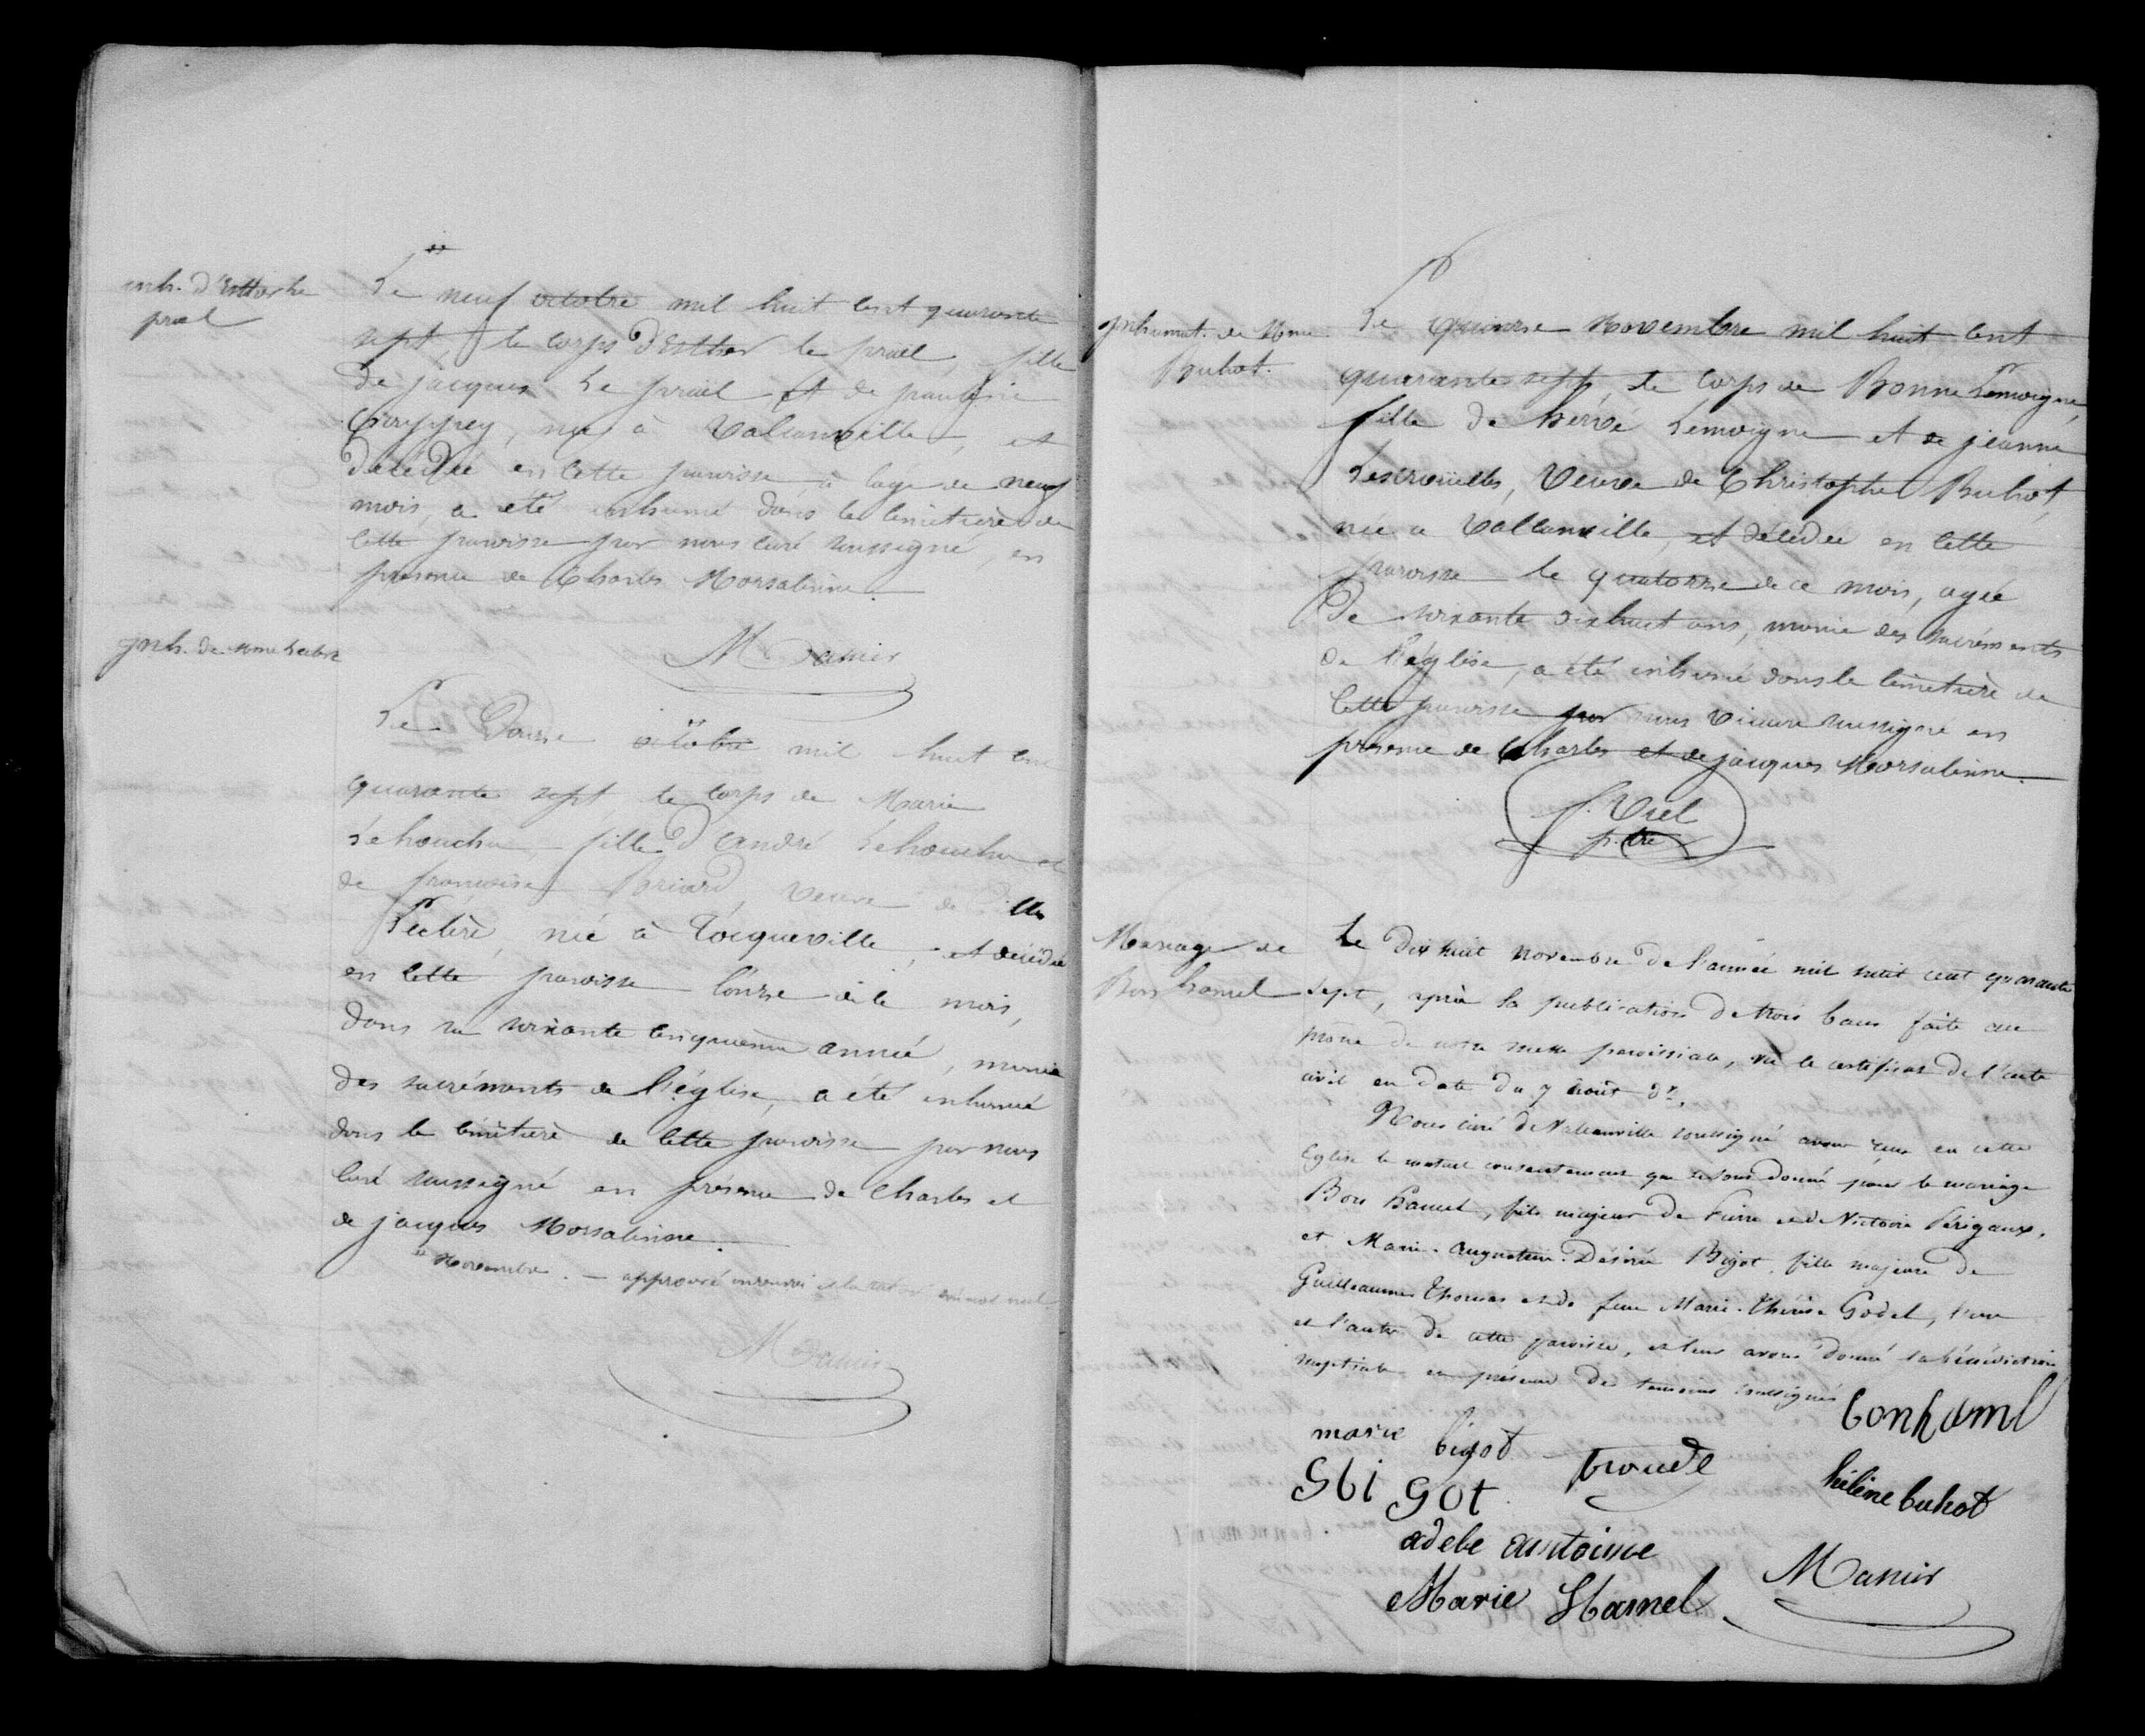 inh. d'Esther le
prael
Le neuf octobre mil huit cent quarante
sept, le corps d'Esther le prael, fille
de jacques Le prael et de
née à Valcanville, et
décédée en cette paroisse à l'age de neuf
mois, a été inhumé dans le cimetière de
cette paroisse par nous curé soussigné, en
présence de Charles Morsalinne.
inh. de
Le Douze octobre mil huit cent
quarante sept, le corps de Marie
Lehouchu, fille d'andré Lehouchu et
de françoise Briard, veuve de Gilles
née à Tocqueville, et décédée
en cette paroisse l'onze de ce mois,
dans sa soixante cinquième année, munie
des sacréments de l'église, a été inhumé
dans le cimétière de cette paroisse par nous
curé soussigné en présence de Charles et
de jacques Morsalinne.
Novembre. — approuvé
inhumat. de
Buhot.
Le Quinze Novembre mil huit cent
quarante sept, le corps de Bonne Lemoigne,
fille de hervé Lemoigne et de jeanne
veuve de Christophe Buhot,
née a Valcanville, et décédée en cette
paroisse le quatorze de ce mois, agée
de soixante dix huit ans, munie des sacréments
de l'église, a été inhumé dans le cimetière de
cette paroisse par nous vicaire soussigné en
présence de Charles et de jacques Morsalinne.
Mariage de
Bon hamel
Le dix huit novembre de l'année mil huit cent quarante
sept, après la publication de trois bans faite au
prone de notre messe paroissiale, vu le certificat de l'acte
civil en date du 7 août dr,
Nous curé de Valcanville soussigné avons reçu en cette
Eglise le mutuel consentement que se sont donné pour le mariage
Bon Hamel, fils majeur de Pierre et de Victoire Périgaux,
et Marie. Augustine. Désirée Bigot, fille majeure de
Guillaume Thomas et de feue Marie. Thérèse Godel, l'un
et l'autre de cette paroisse, et leur avons donné la bénédiction
nuptiale en présence des temoins soussignés
bonhamel
marie bigot troude hélène buhot
G bi got
adele antoinne
Marie Hamel